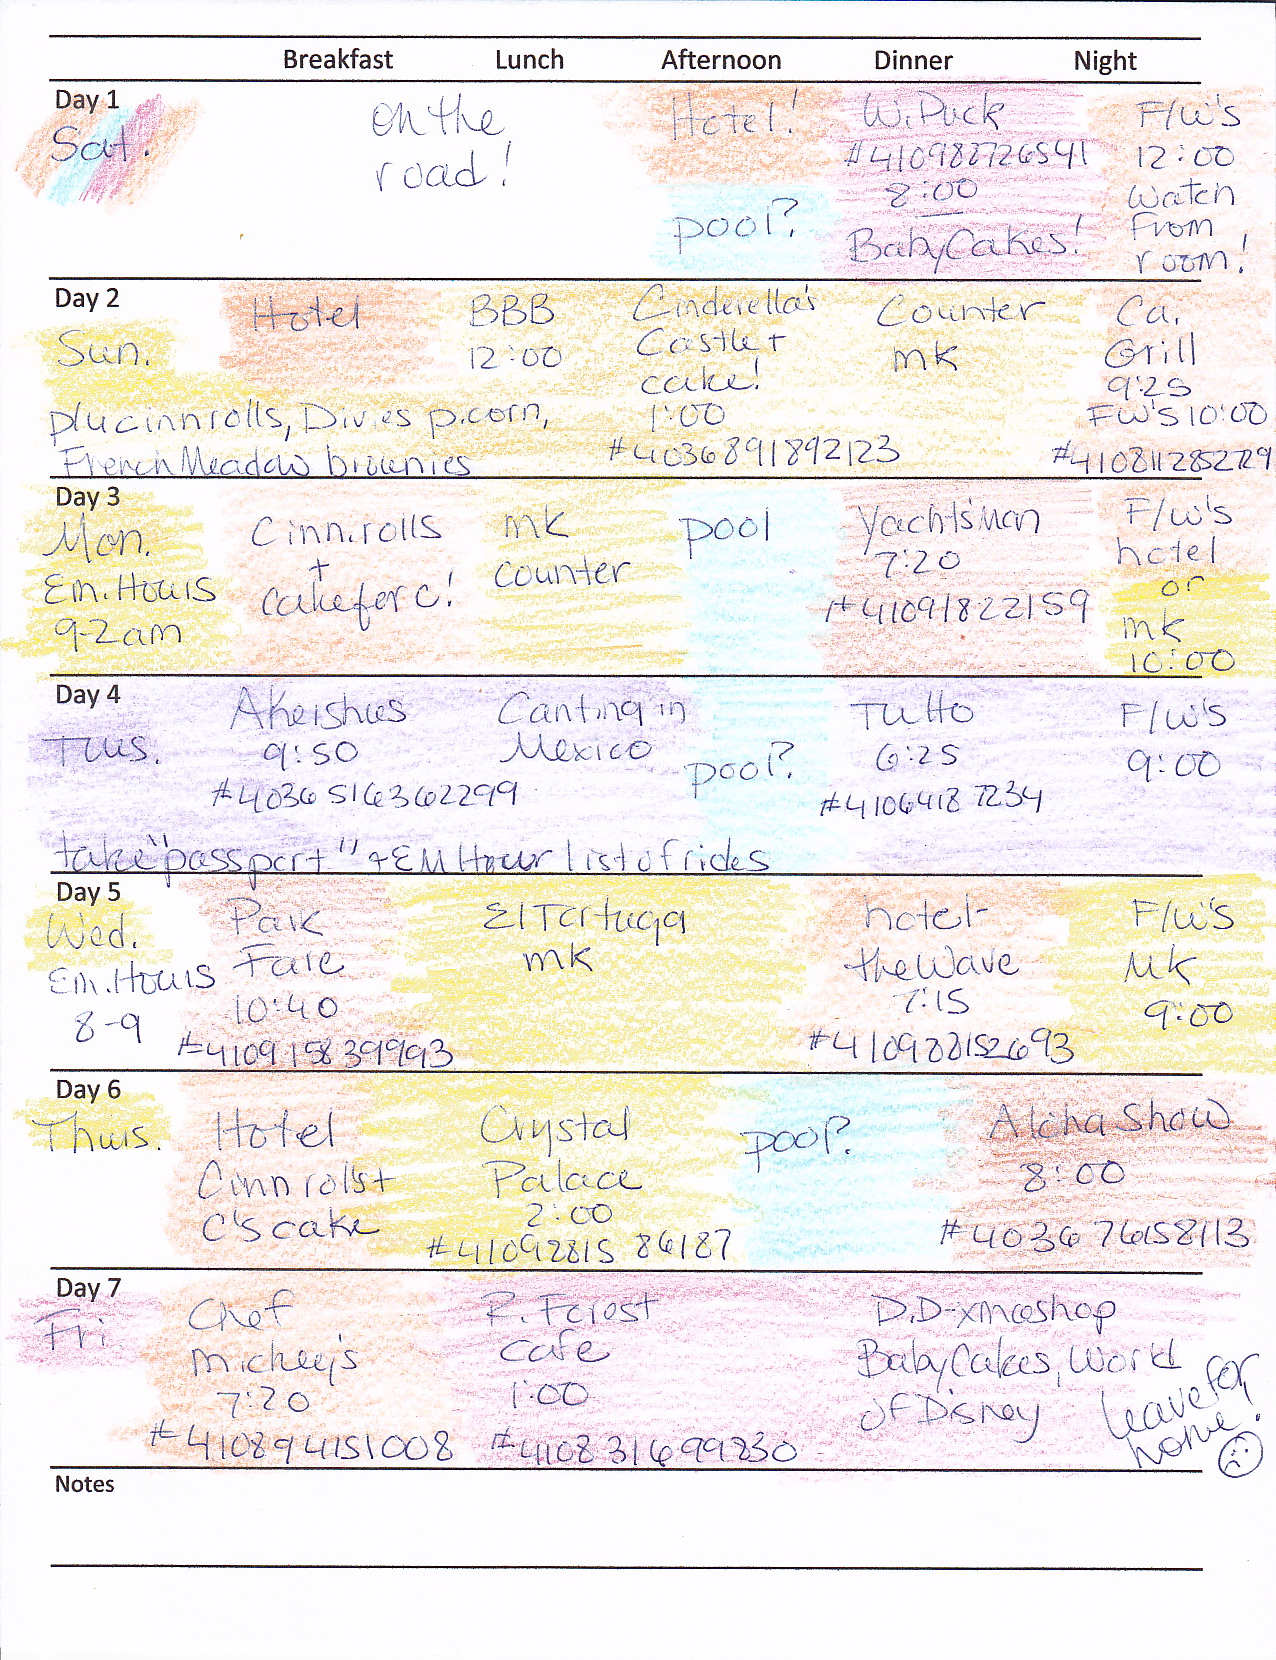 Breakfast Lunch Afternoon Dinner Night
Day 1
Sat.
on the
road!
Hotel!
pool?
W. Puck
#410988726541
8:00
BabyCakes!
F/W's
12:00
Watch
From
room!
Day 2
Sun.
Hotel
BBB
12:00
Cinderella's
Castle +
cake!
1:00
#4036891892123
Counter
MK
Ca.
Grill
9:25
FW'S 10:00
#410811285229
cinnrolls, Divies p.corn,
French Meadow brownies
Day 3
Mon.
Em. Hours
9-2am
Cinn.rolls
+
cake for c!
MK
counter
pool
Yachtsman
7:20
#41091822159
F/W's
hotel
or
MK
10:00
Day 4
Tues.
Akershus
9:50
#4036516362299
Cantina in
Mexico
pool?
Tutto
6:25
#4106418 7234
F/W's
9:00
take "passport" + EM Hour list of rides
Day 5
Wed.
Em. Hours
8-9
Park
Fare
10:40
#410915839993
El Tortuga
MK
hotel-
the Wave
7:15
#410988152693
F/W's
MK
9:00
Day 6
Thurs.
Hotel
Cinn rolls +
C's cake
Crystal
Palace
2:00
#41092815 86187
pool?
Aloha Show
8:00
#4036 76158113
Day 7
Fri
Chef
Mickey's
7:20
#410894151008
R. Forest
Cafe
1:00
#410831699830
D.D-xmasshop
BabyCakes, World
of Disney
leave for
home!
Notes